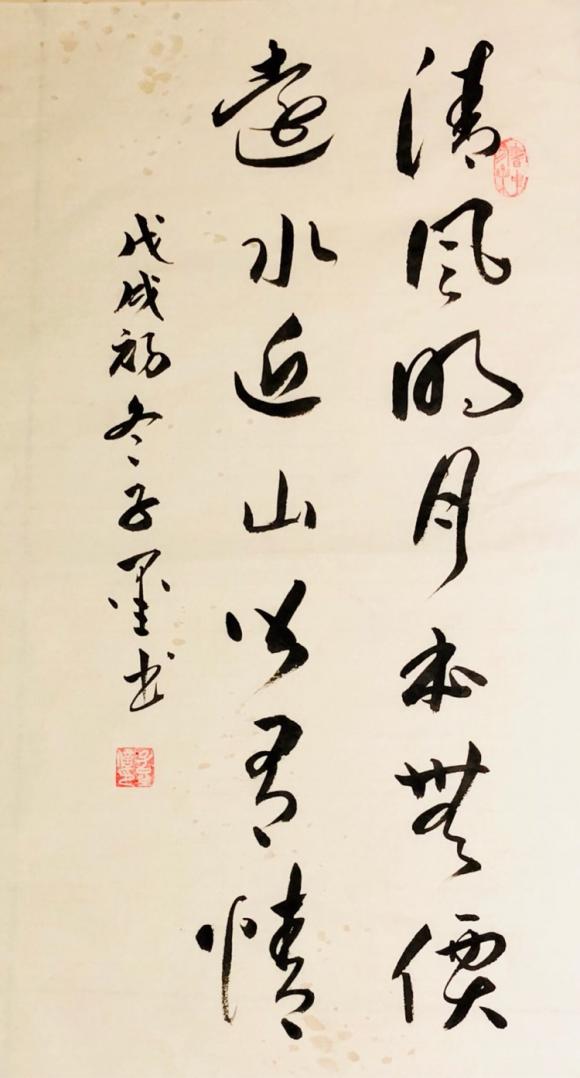 清风明月本無價
遠水近山皆有情
戊戌初冬子墨书